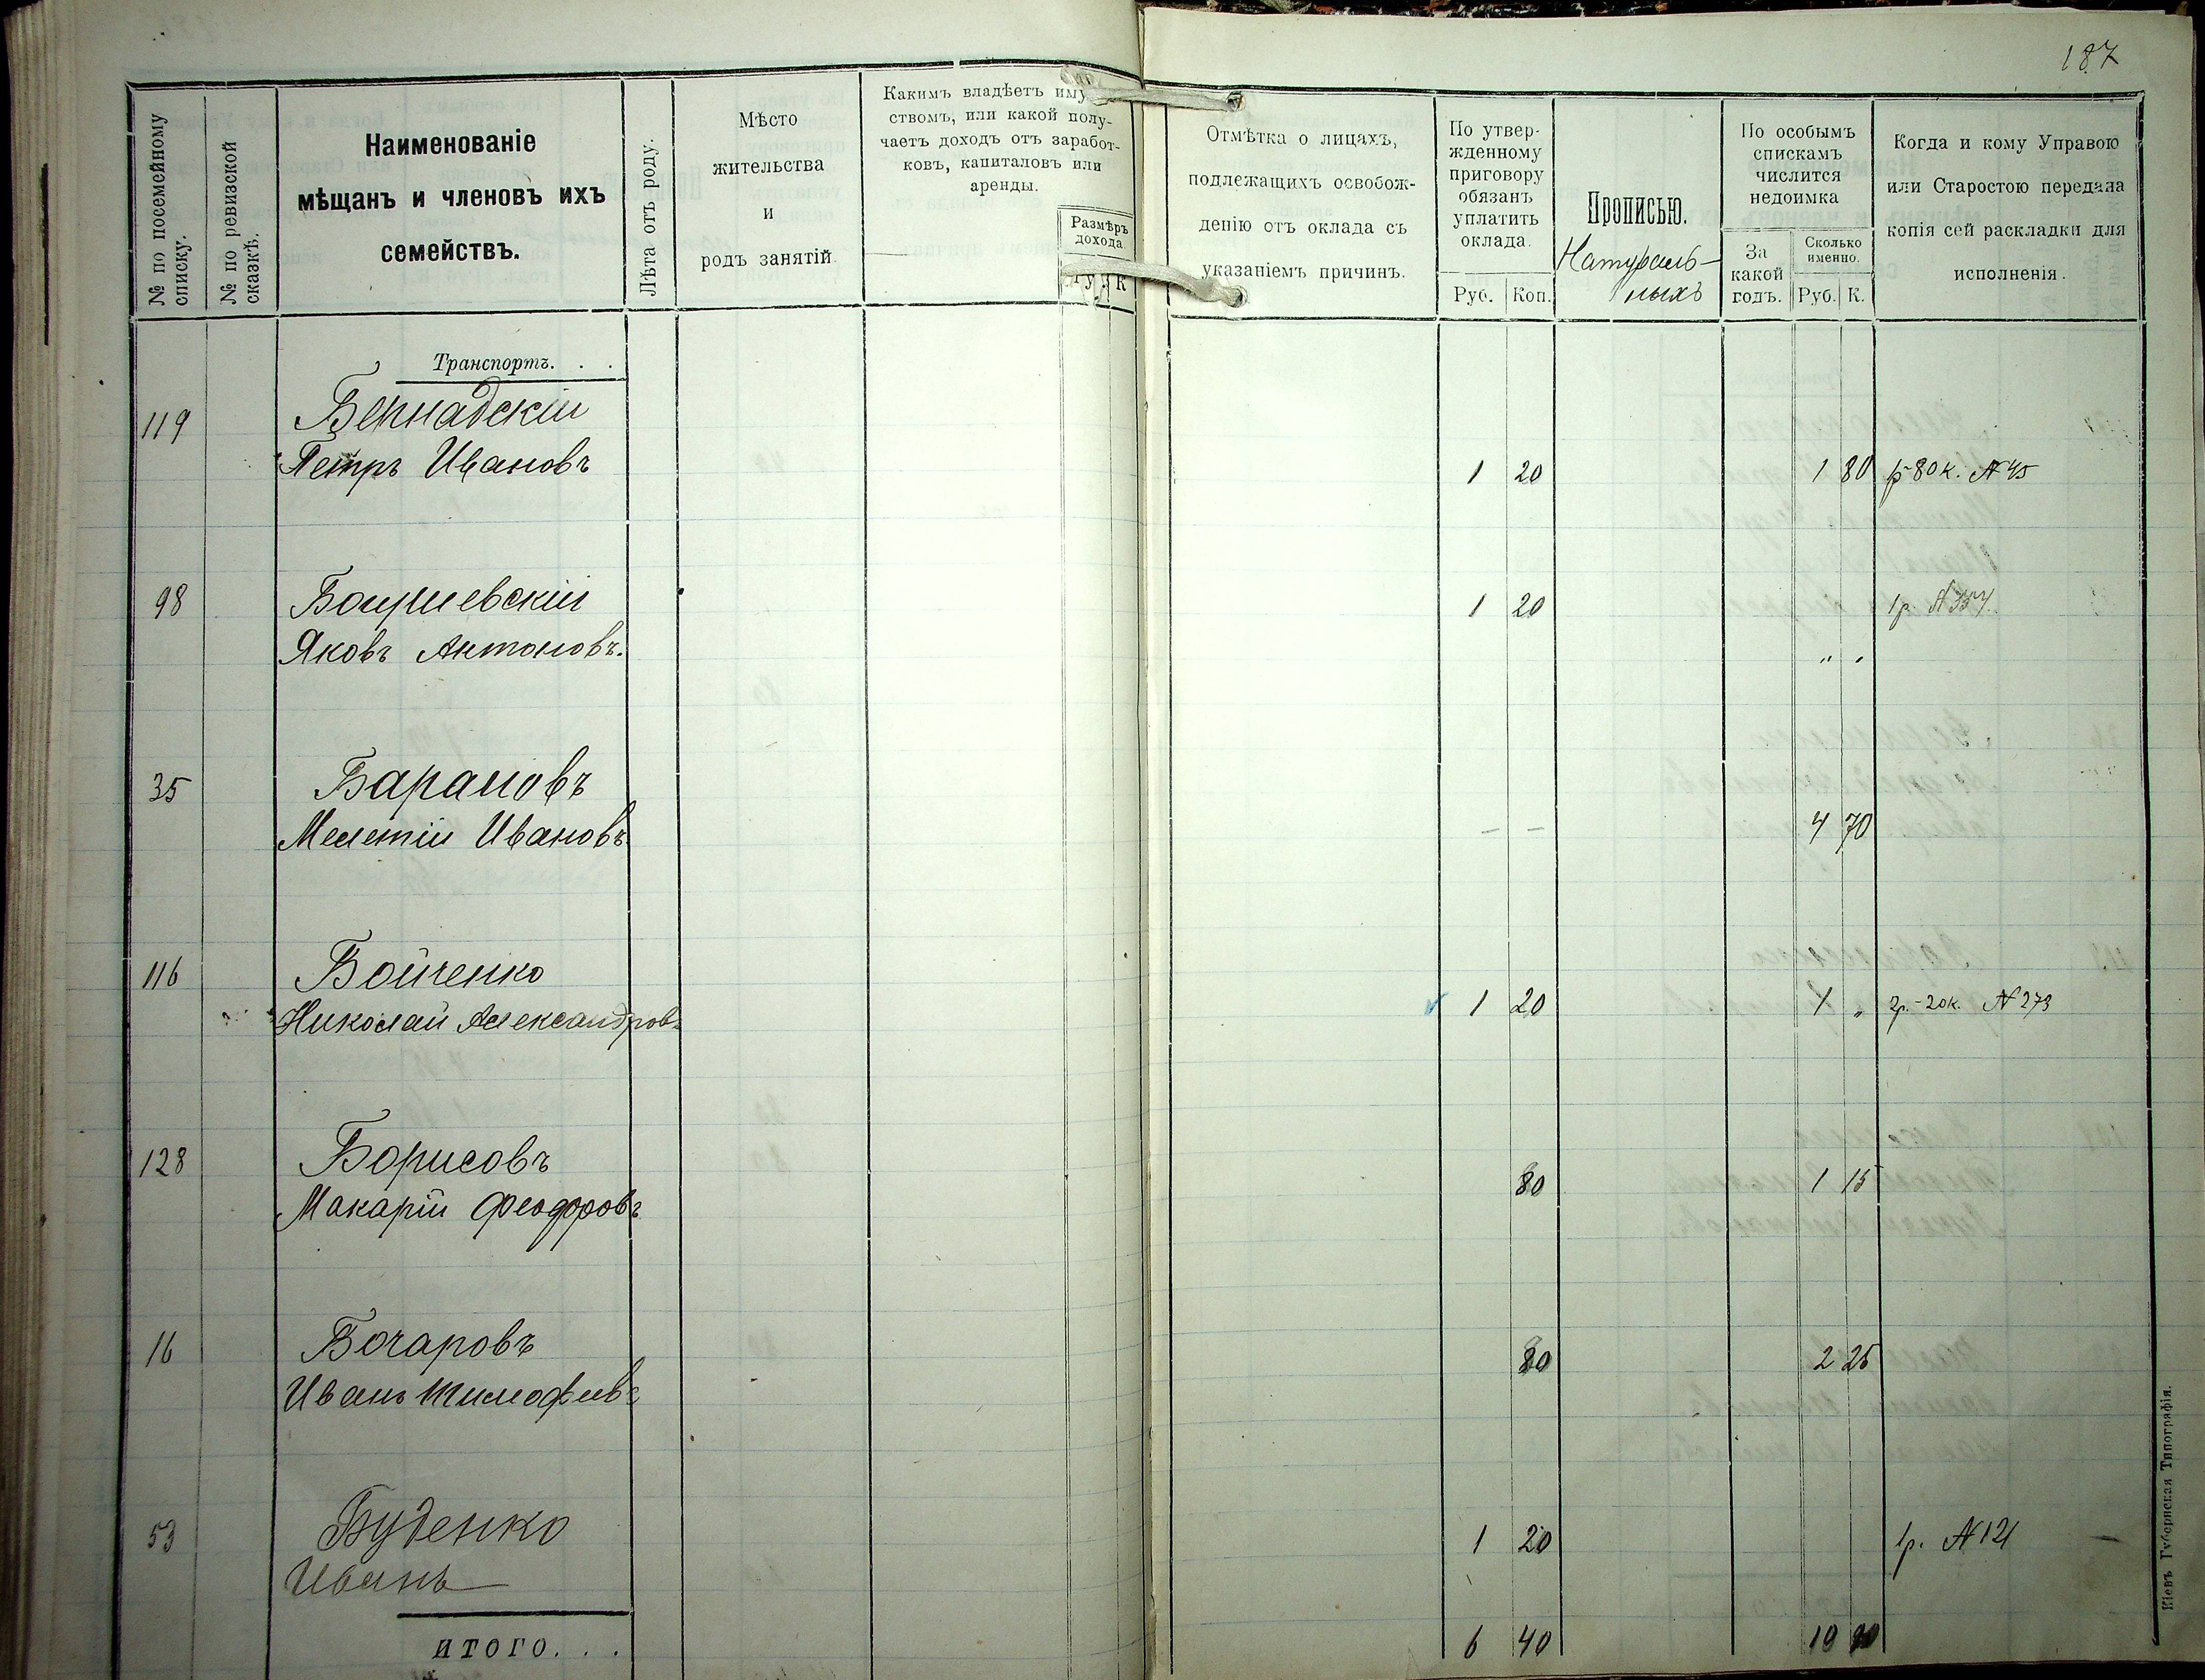 187
№ по посемейному списку.
№ по ревизской сказкѣ.
Наименованіе
мѣщанъ и членовъ ихъ
семействъ.
Лѣта отъ роду.
Мѣсто
жительства
и
родъ занятій.
Какимъ владѣетъ иму-
ствомъ, или какой полу-
чаетъ доходъ отъ заработ-
ковъ, капиталовъ или
аренды.
Размѣръ
дохода.
Отмѣтка о лицахъ,
подлежащихъ освобож-
денію отъ оклада съ
указаніемъ причинъ.
По утвер-
жденному
приговору
обязанъ
уплатить
оклада.
Руб. Коп.
Прописью.
Натураль-
ныхъ
По особымъ
спискамъ
числится
недоимка
За
какой
годъ.
Сколько
именно.
Руб. К.
Когда и кому Управою
или Старостою передана
копія сей раскладки для
исполненія.
Транспортъ. . .
119 Бернадскій
Петръ Ивановъ 1 20 1 80 р 80 к. № 45
98 1 20 1 р.
Яковъ Антоновъ. " "
35 Барановъ
Мелетій Ивановъ — — 4 70
116 Бойченко
Николай Александровъ 1 20 1 " 2р.-20к. № 273
128 Борисовъ
80 1 15
Макарій Феодоровъ
16 Бочаровъ
80 2 25
Иванъ Тимофѣевъ
53 Буденко 1 20 1р. № 121
Иванъ
ИТОГО. . . 6 40 10 90
Кіевъ Губернская Типографія.